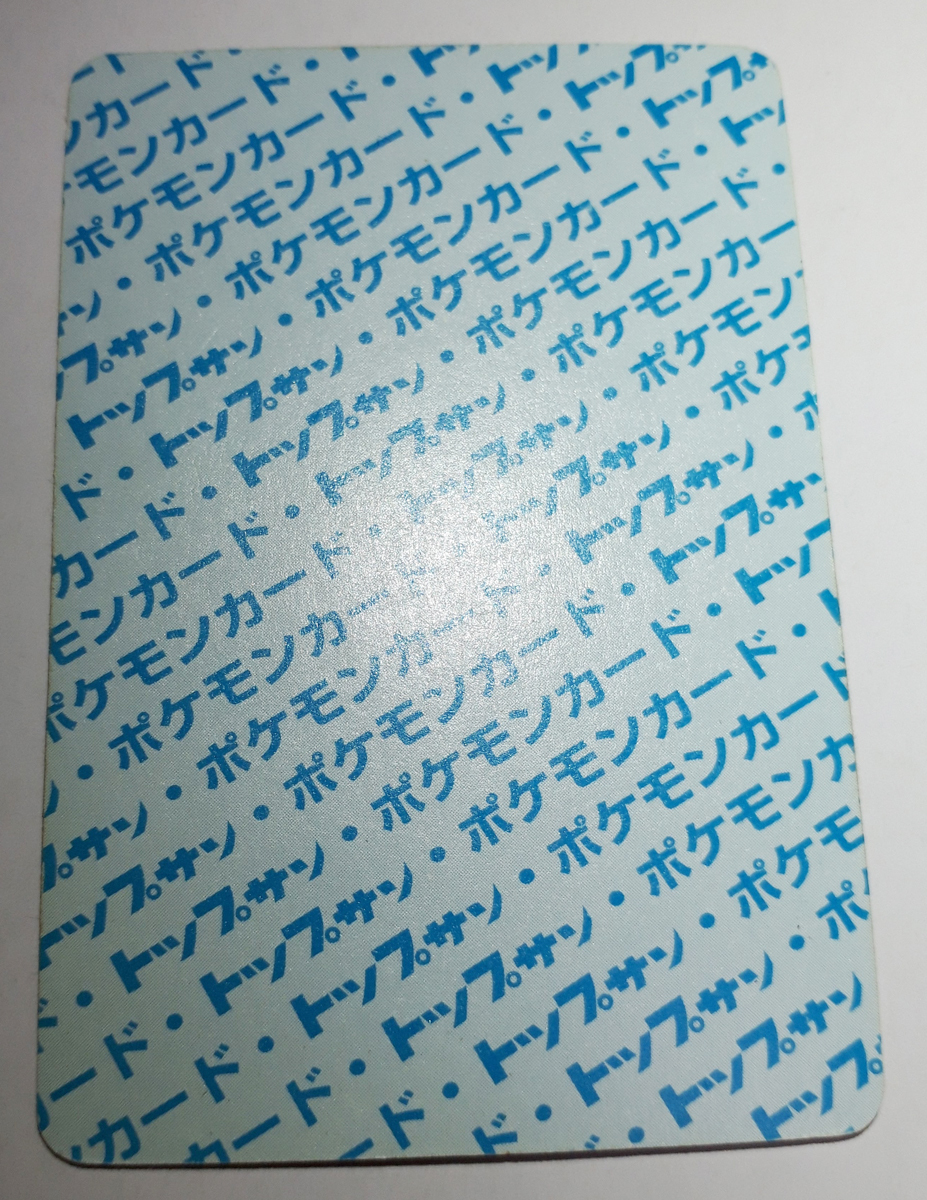 ンカード・
モンカード・ト
ポケモンカード・トッ
ン・ポケモンカード・トップ
プサン・ポケモンカード・トップ
トップサン・ポケモンカード・トッ
ド・トップサン・ポケモンカード・
カード・トップサン・ポケモンカー
モンカード・トップサン・ポケモン
ポケモンカード・トップサン・ポケ
・ポケモンカード・トップサン・ポ
ン・ポケモンカード・トップサン
プサン・ポケモンカード・トップ
トップサン・ポケモンカード・ト
ド・トップサン・ポケモンカード
カード・トップサン・ポケモンカ
カード・トップサン・ポケモ
ード・トップサン・ポ
ド・トップサン
・トップ